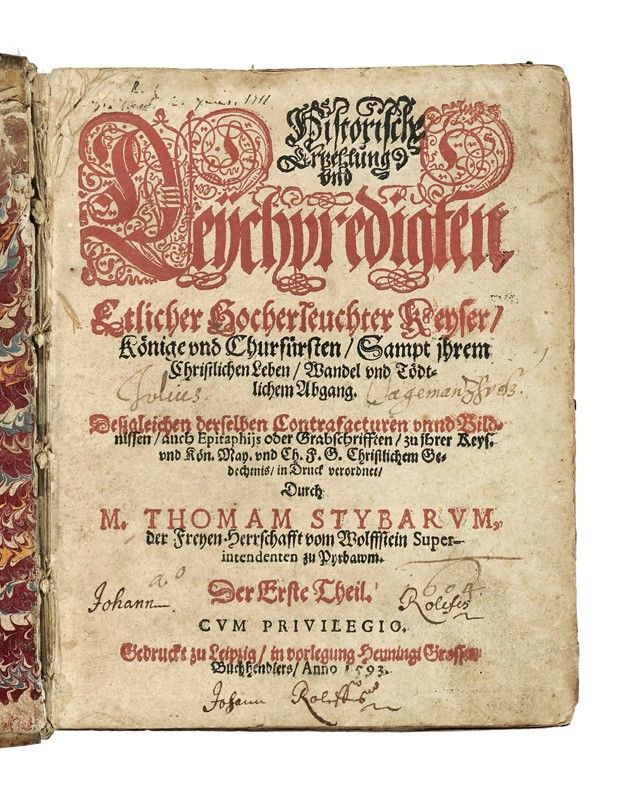 Historische
Erzehlung
vnd
Leÿchpredigten,
Etlicher Hocherleuchter Keyser/
Könige vnd Churfürsten/ Sampt jhrem
Christlichen Leben/ Wandel vnd Tödt-
lichem Abgang.
Julius.
Deßgleichen derselben Contrafacturen vnnd Bild-
nissen/ auch Epitaphijs oder Grabschrifften/ zu jhrer Keys.
vnd Kön. May. vnd Ch. F. G. Christlichem Ge-
dechtnis/ in Druck verordnet/
Durch
M. THOMAM STYBARVM,
der Freyen Herrschafft vom Wolffstein Super-
intendenten zu Pyrbawm.
a o 1604.
Der Erste Theil.
Johann Roleffes
CVM PRIVILEGIO.
Gedruckt zu Leipzig/ in vorlegung Henningi Grossen
Buchhendlers/ Anno 1593.
Johann Roleffes